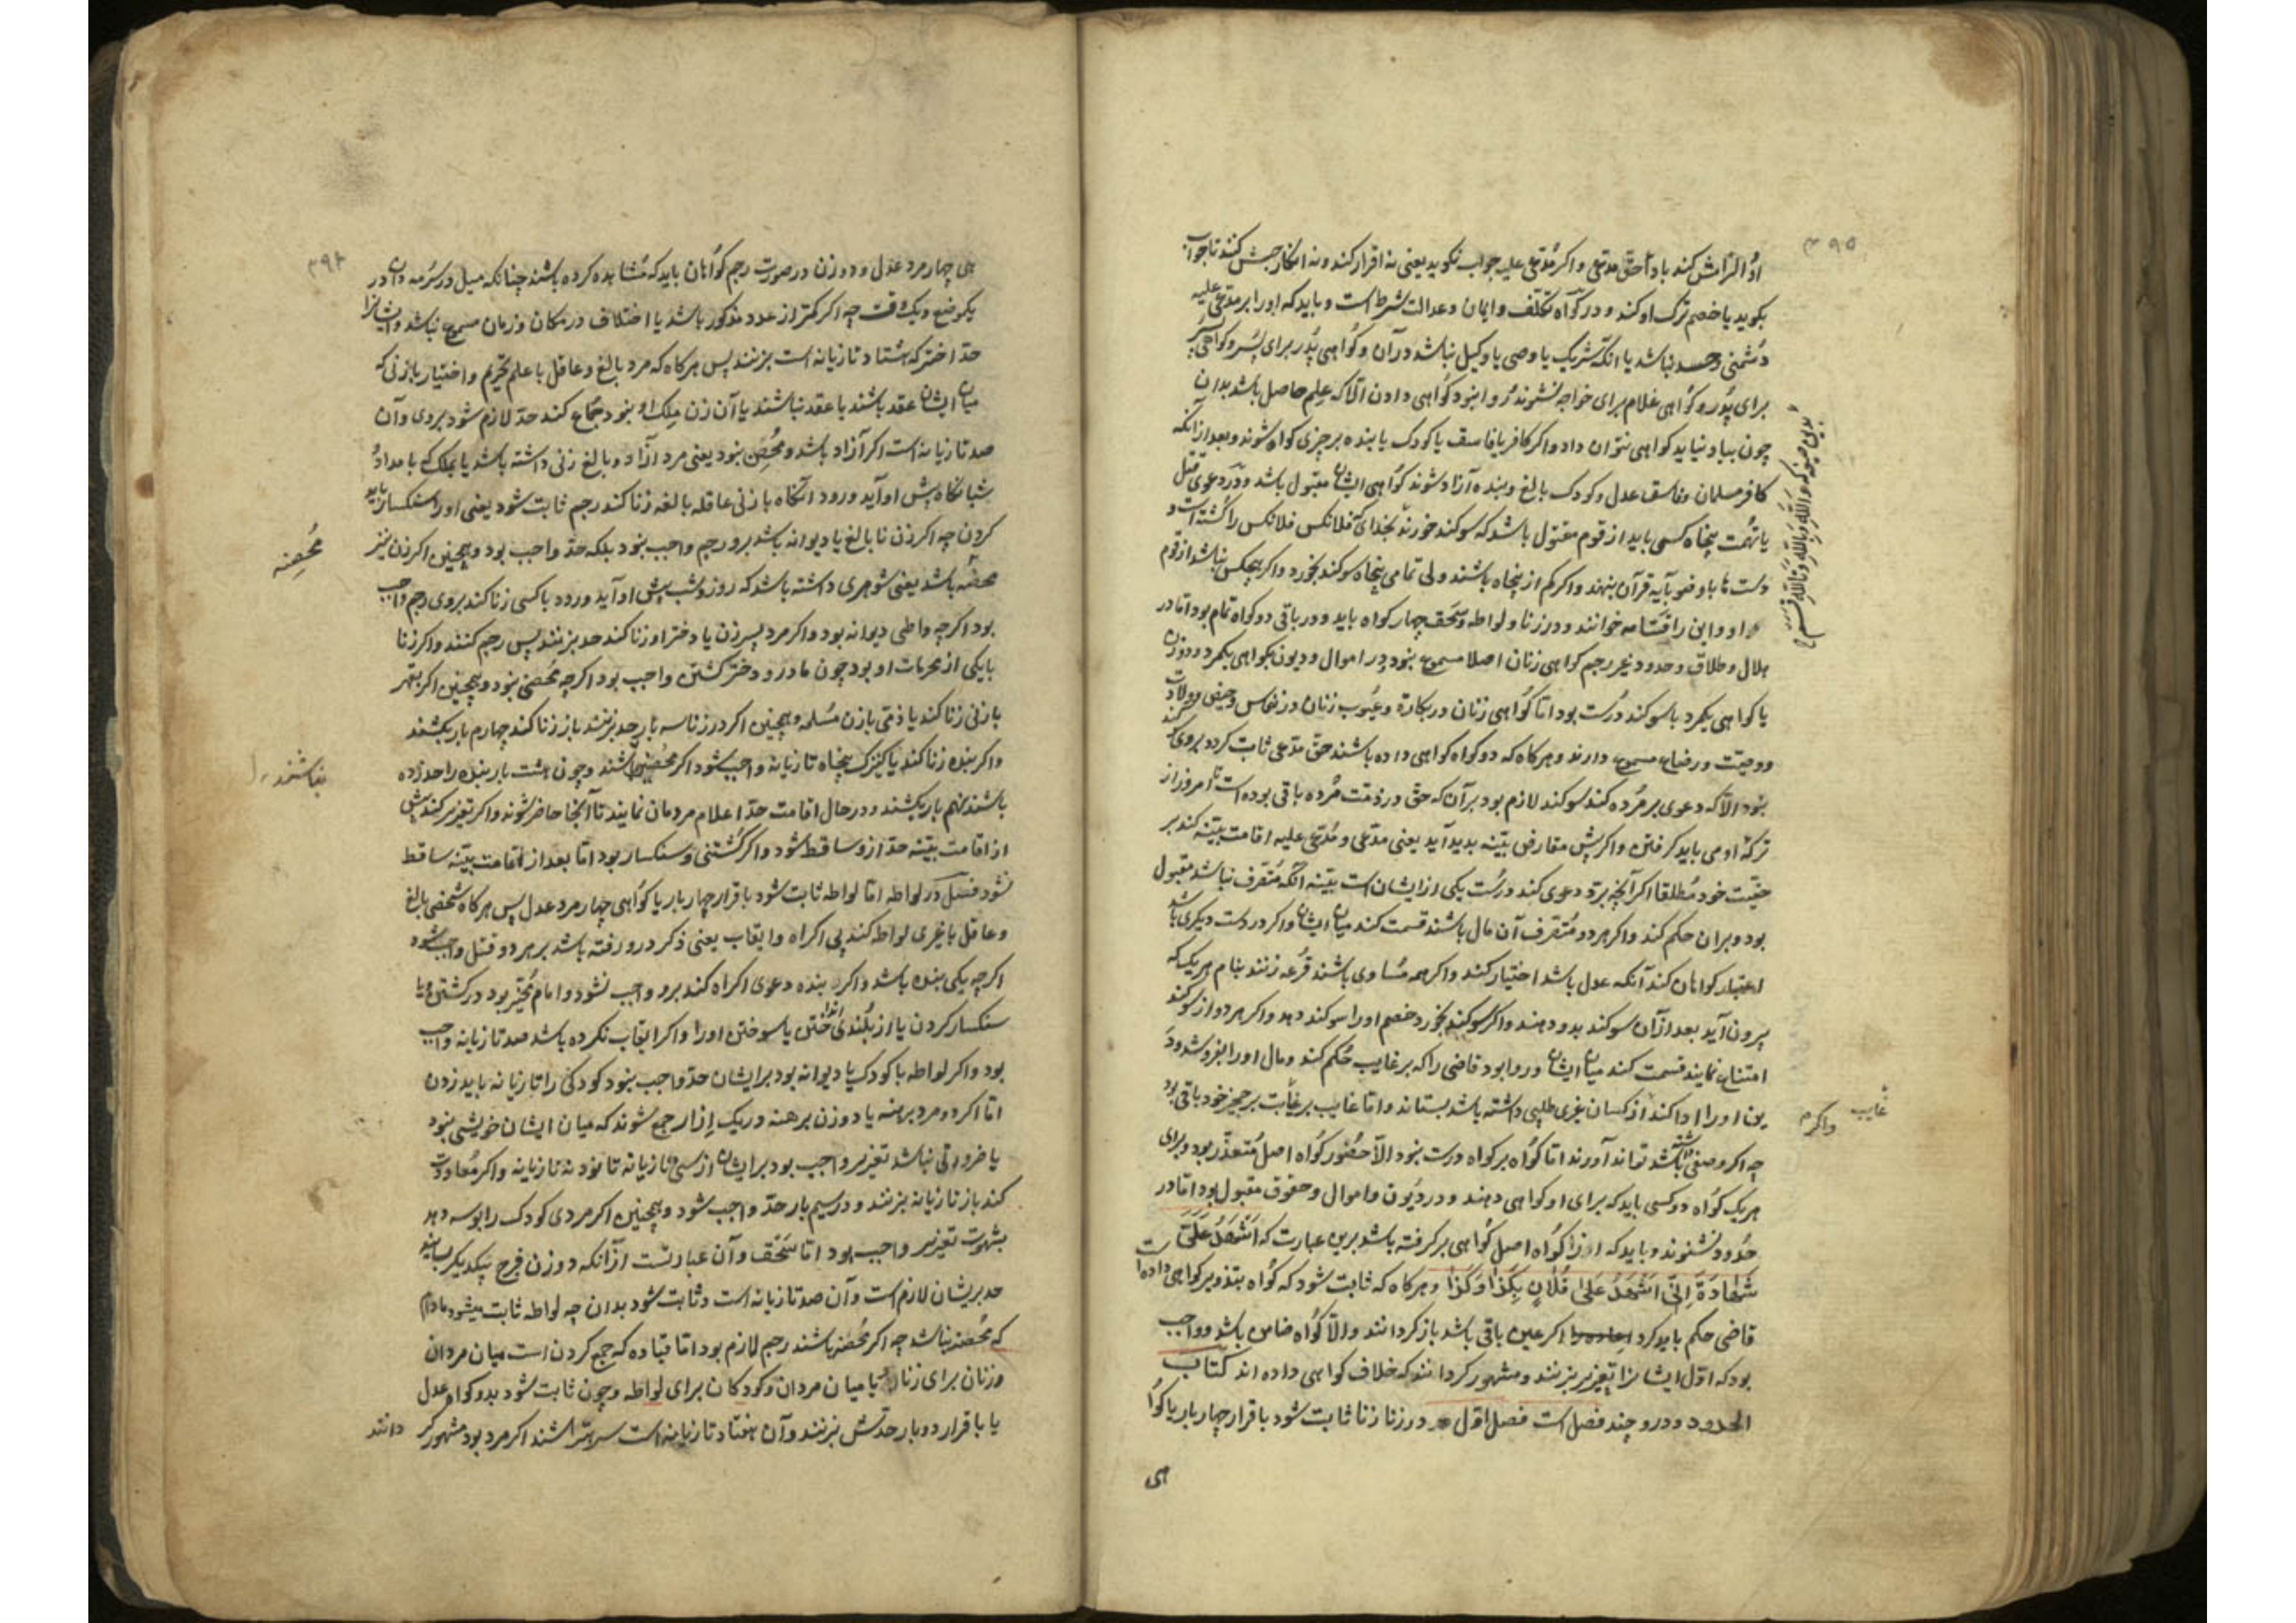 ۳۹۵
او التزامش کند باداء حق مدعی واکر مدعی علیه جواب نکوید یعنی نه اقرار کند ونه انکار حبسش کند تا جواب
بکوید یا خصم ترک او کند و در کواه تکلف وایمان وعدالت شرط است و باید که او را بر مدعی علیه
دشمنی وحسد نباشد یا انکه شریک یا وصی یا وکیل نباشد در آن و کواهی پدر برای پسر وکواهی پسر
برای پدر و کواهی غلام برای خواجه نشنوند و روا نبود کواهی دادن الا که علم حاصل باشد بدان
چون بیاد نیاید کواهی نتوان داد واکر کافر یا فاسق یا کودک یا بنده بر چیزی کواه شوند وبعد از آنکه
کافر مسلمان وفاسق عدل وکودک بالغ وبنده آزاد شوند کواهی ایشان مقبول باشد ودر دعوی قتل
یا تهمت پنجاه کسی باید از قوم مقتول باشد که سوکند خورند بخدای که فلانکس فلانکس را کشته است و
دست ها باوضو بآیه قرآن بنهند واکر کم از پنجاه باشند ولی تمامی پنجاه سوکند بخورد واکر هیچکس نباشد از قوم
او واین را قسامه خوانند و در زنا و لواطه وسحق چهار کواه باید ودر باقی دو کواه تمام بود اما در
هلال وطلاق وحدود غیر رجم کواهی زنان اصلا مسموع نبود در اموال ودیون بکواهی یکمرد ودو زن
یا کواهی یکمرد با سوکند درست بود اما کواهی زنان در بکارة وعیوب زنان ودر نفاس وحیض وولادت
ووصیت ورضاع مسموع دارند وهرکاه که دو کواه کواهی داده باشند حق مدعی ثابت کرد وبروی سوکند
نبود الا که دعوی بر مرده کند سوکند لازم بود بر آن که حق در ذمت مرده باقی بوده است تا امروز از
ترکه او می باید کرفتن واکر پیش مقارض بینه بدید آید یعنی مدعی ومدعی علیه اقامت بینه کند بر
حقیت خود مطلقا اکر آنچه برو دعوی کند در دست یکی از ایشان است بینه آنکه متصرف نباشد مقبول
بود وبران حکم کند واکر هر دو متصرف آن مال باشند قسمت کند میان ایشان واکر در دست دیکری باشد
اعتبار کواهان کند آنکه عدل باشد اختیار کند واکر همه مساوی باشند قرعه زنند بنام هر یک که
بیرون آید بعد از آن سوکند بدو دهند واکر سوکند نخورد خصم او را سوکند دهد واکر هر دو از سوکند
امتناع نمایند قسمت کند میان ایشان وروا بود قاضی را که بر غایب حکم کند ومال او را بفروشد ود
ین او را ادا کند از کسان غیری طلبی داشته باشد بستاند واما غایب بر غایب بر حجز خود باقی بود
چه اکر وصفی باشد تواند آورند اما کواه بر کواه درست نبود الا حضور کواه اصل متعذر بود وبرای
هر یک کواه دو کسی باید که برای او کواهی دهند ودر دیون واموال وحقوق مقبول بود اما در
حدود نشنوند وباید که از کواه اصل کواهی بر کرفته باشد برین عبارت که اشهد علی
شهادة انی اشهد علی فلان بکذا وکذا وهرکاه که ثابت شود که کواه بتزویر کواهی داده است
قاضی حکم باید کرد اکر عین باقی باشد باز کردانند والا کواه ضامن باشد وواجب
بود که اول ایشانرا تعزیر بزنند ومشهور کردانند که خلاف کواهی داده اند کتاب
الحدود ودرو چند فصل است فصل اول در زنا زنا ثابت شود باقرار چهار بار یا کوا
هی
غایب
واکرم
۳۹۴
هی چهار مرد عدل ودو زن در صورت رجم کواهان باید که مشاهده کرده باشند چنانکه میل در سرمه دان در
یکموضع ویکوقت چه اکر کمتر از عدد مذکور باشد یا اختلاف در مکان وزمان مسموع نباشد وایشانرا
حد اخترکه هشتاد تازیانه است بزنند پس هرکاه که مرد بالغ وعاقل با علم تحریم واختیار با زنی که
میان ایشان عقد باشند یا عقد نباشند یا آن زن ملک او نبود جماع کند حد لازم شود بروی وآن
صد تازیانه است اکر آزاد باشد ومحصن نبود یعنی مرد آزاد وبالغ زنی داشته باشد یا بملک که بامداد و
شبانکاه پیش او آید ورود انکاه با زنی عاقله بالغه زنا کند رجم ثابت شود یعنی او را سنکسار باید
کردن چه اکر زن نا بالغ یا دیوانه باشد برو رجم واجب نبود بلکه حد واجب بود وهمچنین اکر زن نیز
محصنه باشد یعنی شوهری داشته باشد که روز وشب پیش او آید ورود با کسی زنا کند بروی رجم واجب
بود اکر چه واطی دیوانه بود واکر مرد پسر زن یا دختر او زنا کند حد بزنند پس رجم کنند واکر زنا
با یکی از محرمات او بود چون مادر ودختر کشتن واجب بود اکر چه محصن نبود وهمچنین اکر بقهر
با زنی زنا کند یا ذمی با زن مسلمه وهمچنین اکر در زنا سه بار حد بزنند باز زنا کند چهارم بار بکشند
واکر بنده زنا کند یا کنیزک پنجاه تازیانه واجب شود اکر محصن باشند وچون هشت بار بنده را حد زده
باشند نهم بار بکشند ودر حال اقامت حد اعلام مردمان نمایند تا آنجا حاضر شوند واکر تعزیر کند پیش
از اقامت بینه حد ازو ساقط شود واکر کشتنی وسنکسار بود اما بعد از اقامت بینه ساقط
نشود فصل در لواطه اما لواطه ثابت شود باقرار چهار بار یا کواهی چهار مرد عدل پس هرکاه شخصی بالغ
وعاقل با غیری لواط کند بی اکراه وایقاب یعنی ذکر درو رفته باشد بر هر دو قتل واجب شود
اکر چه یکی بنده باشد واکر بنده دعوی اکراه کند برو واجب نشود وامام مخیر بود در کشتن ویا
سنکسار کردن یا از بلندی انداختن یا سوختن او را واکر ایقاب نکرده باشد صد تازیانه واجب
بود واکر لواطه با کودک یا دیوانه بود بر ایشان حد واجب نبود کودکی را تازیانه باید زدن
اما اکر دو مرد برهنه یا دو زن برهنه در یک ازار جمع شوند که میان ایشان خویشی نبود
یا ضرورتی نباشد تعزیر واجب بود بر ایشان از سی تازیانه تا نود نه تازیانه واکر معاودت
کند باز تازیانه بزنند ودر سیم بار حد واجب شود وهمچنین اکر مردی کودک را بوسه دهد
بشهوت تعزیر واجب بود اما سحق وآن عبارتست از آنکه دو زن فرج بیکدیکر بسایند
حد بریشان لازم است وآن صد تازیانه است وثابت شود بدان چه لواطه ثابت میشود مادام
که محصنه نباشد چه اکر محصنه باشند رجم لازم بود اما قیاده که جمع کردن است میان مردان
وزنان برای زنا یا میان مردان وکودکان برای لواطه وچون ثابت شود بدو کواه عدل
یا باقرار دو بار حدش بزنند وآن هفتاد تازیانه است سر بتراشند اکر مرد بود مشهور کر
دانند
محصنه
نباشند